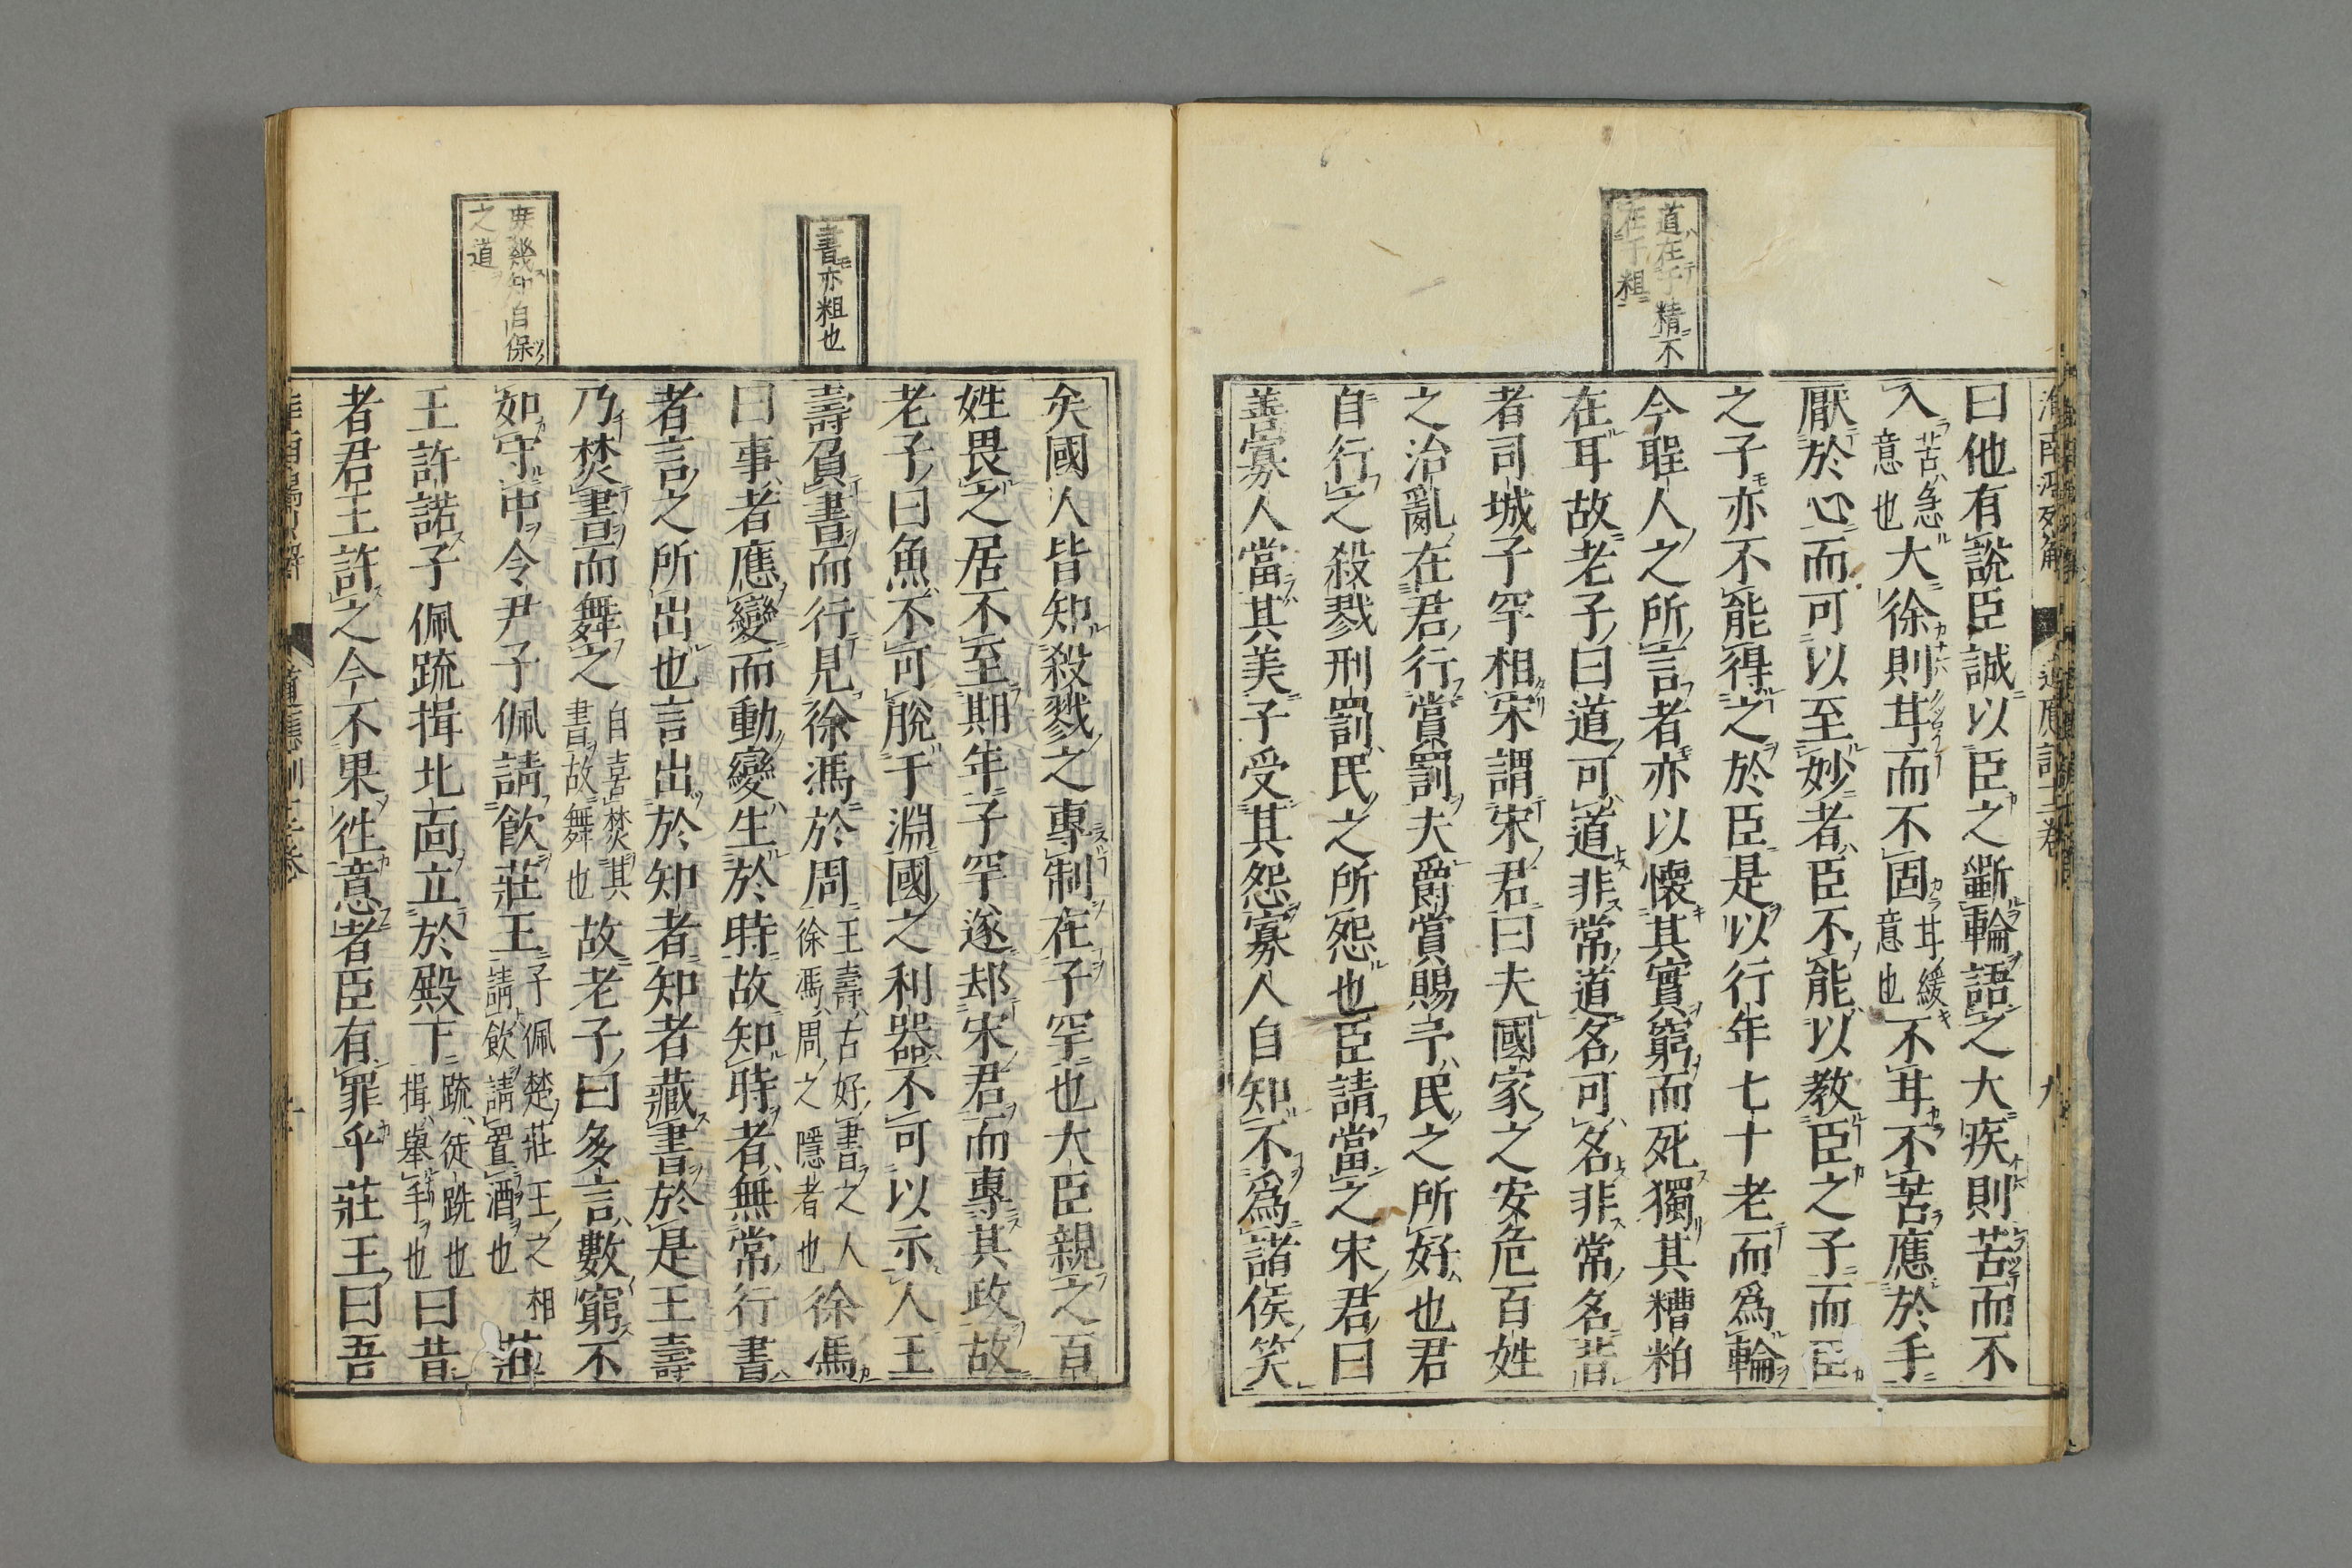 道在于精不
在于粗
曰他有說臣誠以臣之斵輪語之大疾則苦而不
入苦急意也大徐則甘而不固甘緩意也不甘不苦應於手
厭於心而可以至妙者臣不能以教臣之子而臣
之子亦不能得之於臣是以行年七十老而爲輪
今聖人之所言者亦以懷其實窮而死獨其糟粕
在耳故老子曰道可道非常道名可名非常名昔
者司城子罕相宋謂宋君曰夫國家之安危百姓
之治亂在君行賞罰夫爵賞賜予民之所好也君
自行之殺戮刑罰民之所怨也臣請當之宋君曰
善寡人當其美子受其怨寡人自知不爲諸侯笑
書亦粗也
庶幾知自保
之道
矣國人皆知殺戮之專制在子罕也大臣親之百
姓畏之居不至期年子罕遂却宋君而專其政故
老子曰魚不可脫于淵國之利器不可以示人王
壽負書而行見徐馮於周王壽古好書之人徐馮周之隱者也徐馮
曰事者應變而動變生於時故知時者無常行書
者言之所出也言出於知者知者藏書於是王壽
乃焚書而舞之自喜焚其書故舞也故老子曰多言數窮不
如守中令尹子佩請飲莊王子佩楚莊王之相請飲請置酒也莊
王許諾子佩䟽揖北面立於殿下䟽徒跣也揖舉手也曰昔
者君王許之今不果徃意者臣有罪乎莊王曰吾